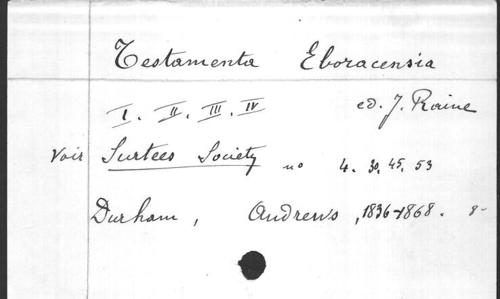 Testamenta Eboracensia
I. II. III. IV ed. J. Raine
Voir Surtees Society no 4. 30, 45, 53
Durham, Andrews, 1836-1868. 8-